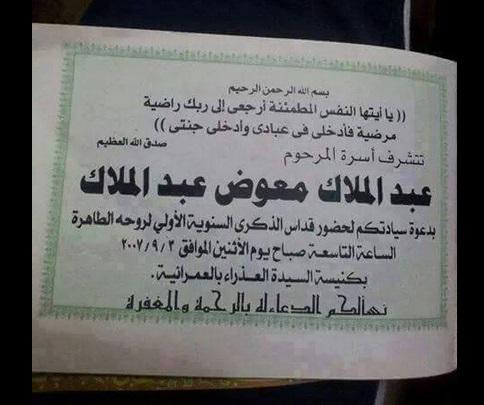 بسم الله الرحمن الرحيم
(( يا أيتها النفس المطمئنة أرجعى إلى ربك راضية
مرضية فأدخلى فى عبادى وأدخلى جنتى ))
صدق الله العظيم
تتشرف أسرة المرحوم
عبد الملاك معوض عبد الملاك
بدعوة سيادتكم لحضور قداس الذكرى السنوية الأولي لروحه الطاهرة
الساعة التاسعة صباح يوم الأثنين الموافق ٢٠٠٧/٩/٣
بكنيسة السيدة العذراء بالعمرانية .
نسألكم الدعاء له بالرحمة والمغفرة